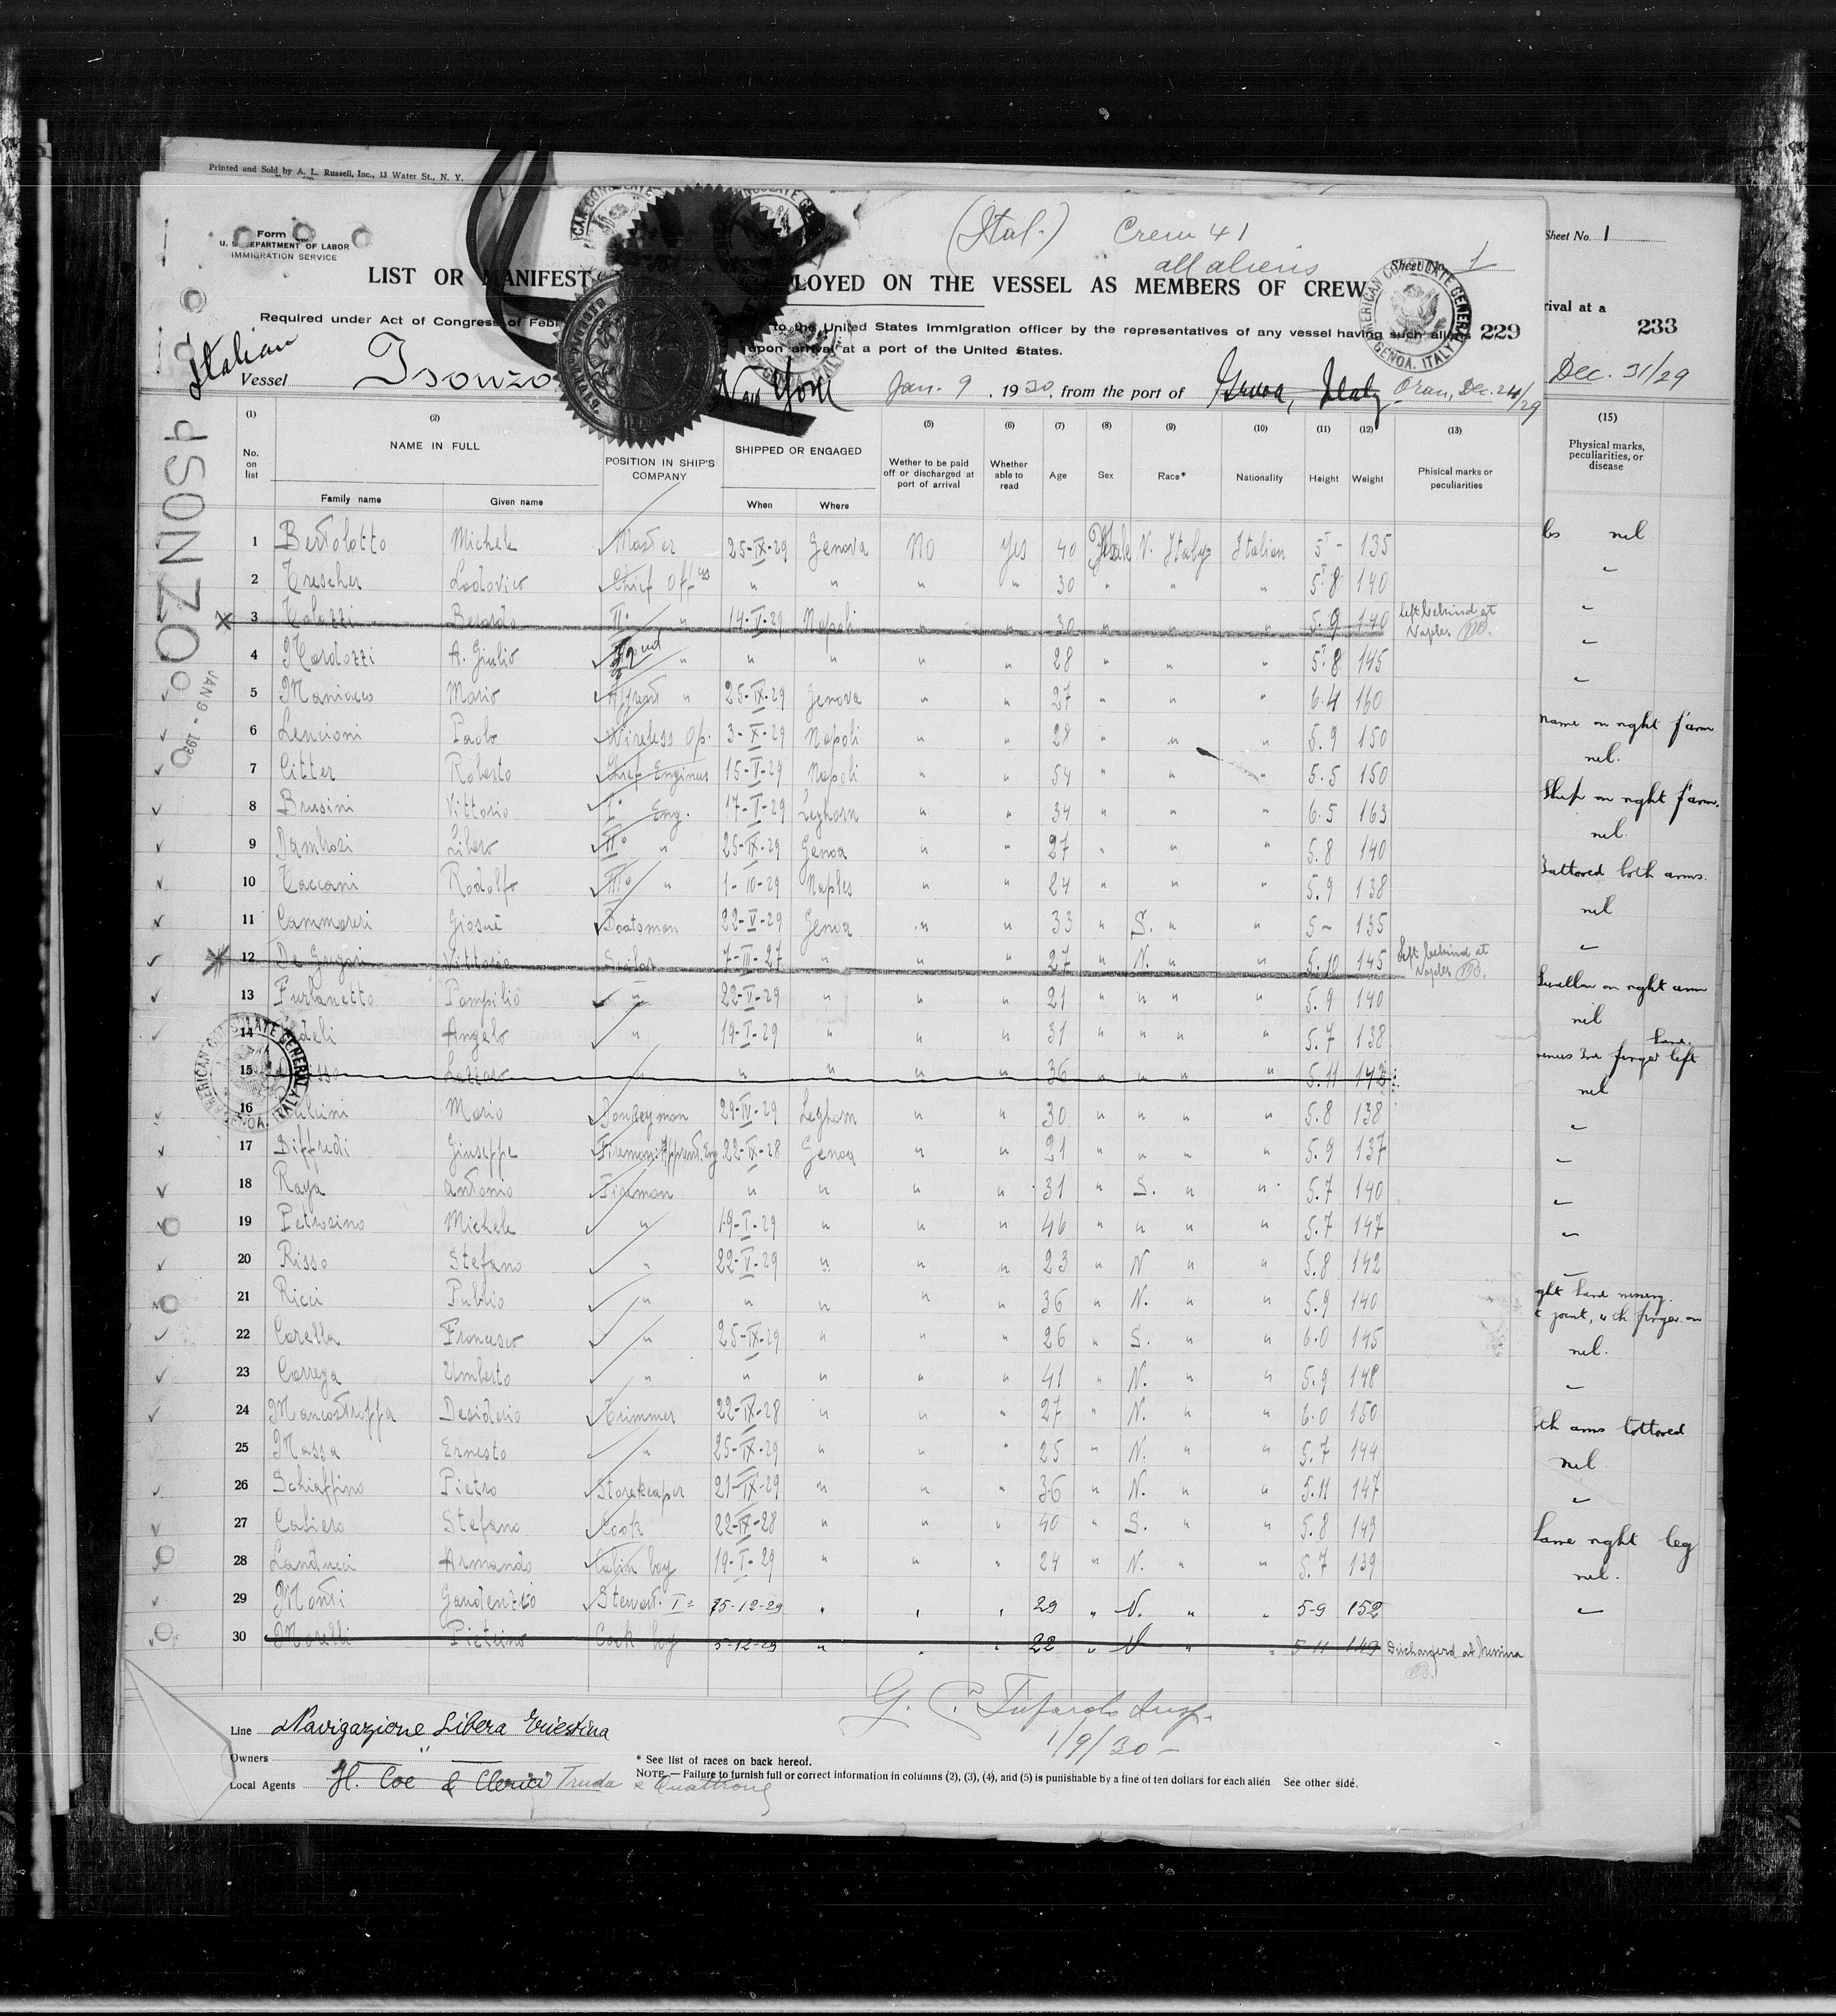 Printed and Sold by A. L. Russell, Inc., 13 Water St., N. Y.
Form
U. S. DEPARTMENT OF LABOR
IMMIGRATION SERVICE
(Ital.) Crew 41
all aliens
Sheet No. 1
Sheet No. 1
LIST OR MANIFEST LOYED ON THE VESSEL AS MEMBERS OF CREW
AMERICAN CONSULATE GENERAL GENOA, ITALY
Required under Act of Congress of Feb to the United States Immigration officer by the representatives of any vessel having such aliens 229
upon arrival at a port of the United States.
rival at a
233
Italian
Vessel Isonzo New York Jan. 9, 1930, from the port of Genoa, Italy Oran, Dec. 24/29
Dec. 31/29
ISONZO
JAN 9 - 1930
(1) (2) (5) (6) (7) (8) (9) (10) (11) (12) (13) (15)
No. on list NAME IN FULL POSITION IN SHIP'S COMPANY SHIPPED OR ENGAGED Wether to be paid off or discharged at port of arrival Whether able to read Age Sex Race* Nationality Height Weight Phisical marks or peculiarities Physical marks, peculiarities, or disease
Family name Given name When Where
1 Bertolotto Michele Master 25-IX-29 Genova No Yes 40 Male N. Italy Italian 5 - 135
2 Trescher Lodovico Chief Off 〃 〃 〃 〃 30 〃 〃 〃 5.8 140
3 Berardo II° 〃 14-V-29 Napoli 〃 〃 30 〃 〃 〃 5.9 140 left behind at Naples
4 Mardozzi A. Giulio 〃 〃 〃 〃 〃 28 〃 〃 〃 5.8 145
5 Maniacco Mario 〃 25-IX-29 Genova 〃 〃 27 〃 〃 〃 6.4 160
6 Lencioni Paolo Wireless Op. 3-X-29 Napoli 〃 〃 28 〃 〃 〃 5.9 150
7 Citter Roberto Chief Engineer 15-V-29 Napoli 〃 〃 54 〃 〃 〃 5.5 150
8 Brusini Vittorio I° Eng. 17-I-29 Leghorn 〃 〃 34 〃 〃 〃 6.5 163
9 Dambrosi Libero II° 〃 25-IX-29 Genoa 〃 〃 27 〃 〃 〃 5.8 140
10 Taccani Rodolfo III° 〃 1-10-29 Naples 〃 〃 24 〃 〃 〃 5.9 138
11 Cammareri Giosuè Boatsman 22-V-29 Genoa 〃 〃 33 〃 S. 〃 〃 5 - 135
12 De Gregori Vittorio Sailor 7-III-27 〃 〃 〃 27 〃 N. 〃 〃 5.10 145 Left behind at Naples
13 Furlanetto Pompilio 〃 22-V-29 〃 〃 〃 21 〃 〃 〃 〃 5.9 140
14 Angelo 〃 19-I-29 〃 〃 〃 31 〃 〃 〃 〃 5.7 138
15 Lazzaro 〃 〃 〃 〃 〃 36 〃 〃 〃 〃 5.11 142
16 Mario Donkeyman 29-IV-29 Leghorn 〃 〃 30 〃 〃 〃 〃 5.8 138
17 Diffredi Giuseppe Fireman Apprent. Eng. 22-IX-28 Genoa 〃 〃 21 〃 〃 〃 〃 5.9 137
18 Raya Antonio Fireman 〃 〃 〃 〃 31 〃 S. 〃 〃 5.7 140
19 Petrosino Michele 〃 19-I-29 〃 〃 〃 46 〃 〃 〃 〃 5.7 147
20 Risso Stefano 〃 22-V-29 〃 〃 〃 23 〃 N 〃 〃 5.8 142
21 Ricci Publio 〃 〃 〃 〃 〃 36 〃 N. 〃 〃 5.9 140
22 Corella Francesco 〃 25-IX-29 〃 〃 〃 26 〃 S. 〃 〃 6.0 145
23 Correga Umberto 〃 〃 〃 〃 〃 41 〃 N. 〃 〃 5.9 148
24 Mancastroppa Desiderio Trimmer 22-IX-28 〃 〃 〃 27 〃 N. 〃 〃 6.0 150
25 Massa Ernesto 〃 25-IX-29 〃 〃 〃 25 〃 N. 〃 〃 5.7 144
26 Schiaffino Pietro Storekeaper 21-IX-29 〃 〃 〃 36 〃 N. 〃 〃 5.11 147
27 Cafiero Stefano Cook 22-IX-28 〃 〃 〃 40 〃 S. 〃 〃 5.8 149
28 Landucci Armando Cabin boy 19-I-29 〃 〃 〃 24 〃 N. 〃 〃 5.7 139
29 Monti Gaudenzio Stewart I° 15-12-29 〃 〃 〃 29 〃 N. 〃 〃 5-9 152
30 Morelli Pietrino Cook boy 5-12-29 〃 〃 〃 22 〃 N 〃 〃 5-11 149 Dischargerd at Messina
nil
name on right f'arm
nil.
Ship on right f'arm.
nil.
Tattored both arms.
nil
Swallow on right arm
nil
hand.
minus 3rd finger left
nil
ght hand missing.
t joint, 4th finger on
nil.
oth arms tottored
nil
Lame right leg
nil.
G. C. Tufarolo Insp.
1/9/30 -
Line Navigazione Libera Triestina
Owners 〃
Local Agents H. Coe & Clerici Truda & Quattrone
* See list of races on back hereof.
NOTE — Failure to furnish full or correct information in columns (2), (3), (4), and (5) is punishable by a fine of ten dollars for each alien. See other side.